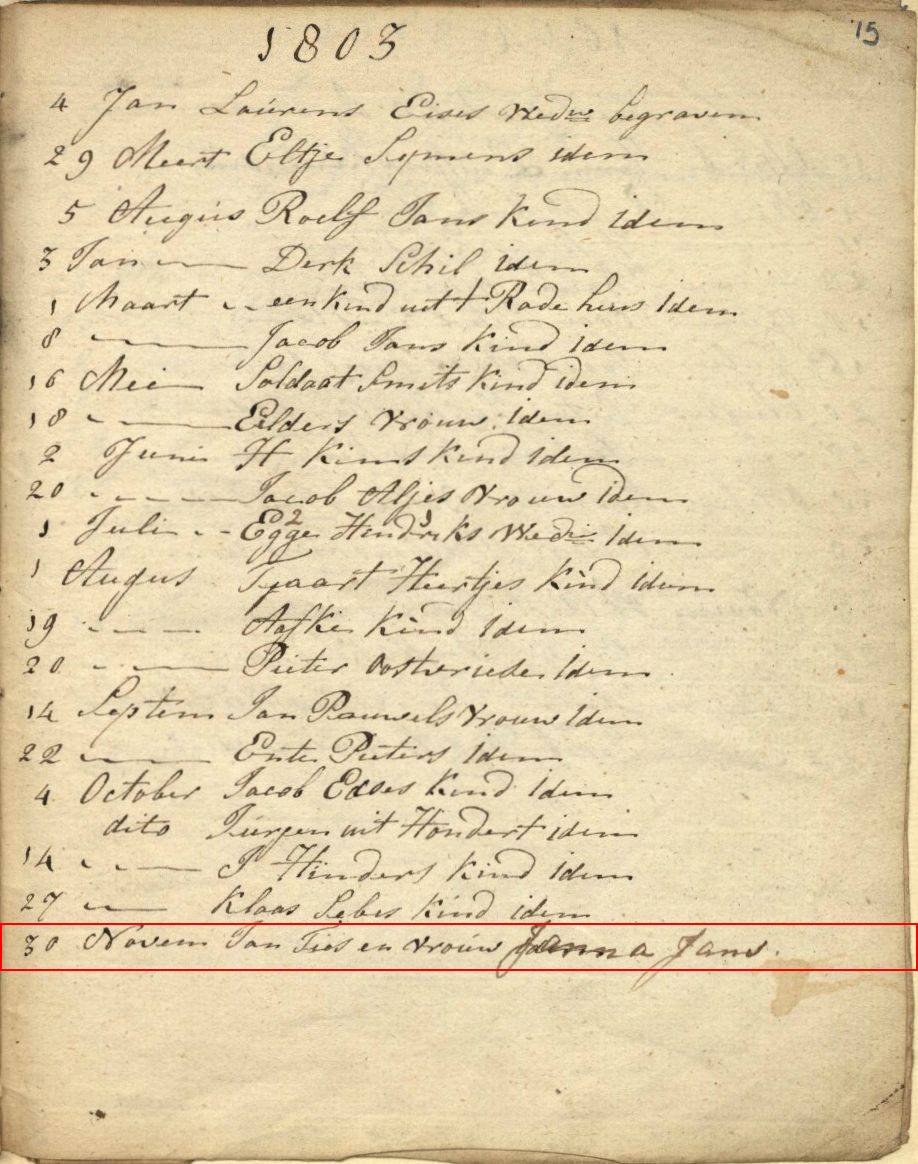 15
1803
4 Jan Laurens Eises Wedw begraven
29 Meert Eltje Symens idem
5 Augus Roelf Jans Kind idem
3 Jan Derk Schil idem
1 Maart een Kind uit t Rode huus Idem
8 Jacob Jans Kind idem
16 Mei Soldaat Smits Kind idem
18 Eilders vrouw idem
2 Juni H Kims Kind idem
20 Jacob Aljes vrouw Idem
1 Juli Egge 2 Hendriks 1 Wedw Idem
1 Augus Tjaart Heertjes Kind idem
19 Aafke Kind idem
20 Pieter Oostvriede Idem
14 Septem Jan Pauwels vrouw Idem
22 Ente Pieters idem
4 October Jacob Edses Kind idem
dito Jurgen uit Hondert idem
14 P Hinders Kind idem
27 Klaas Sebes Kind idem
30 Novem Jan Ties en vrouw Janna Jans.